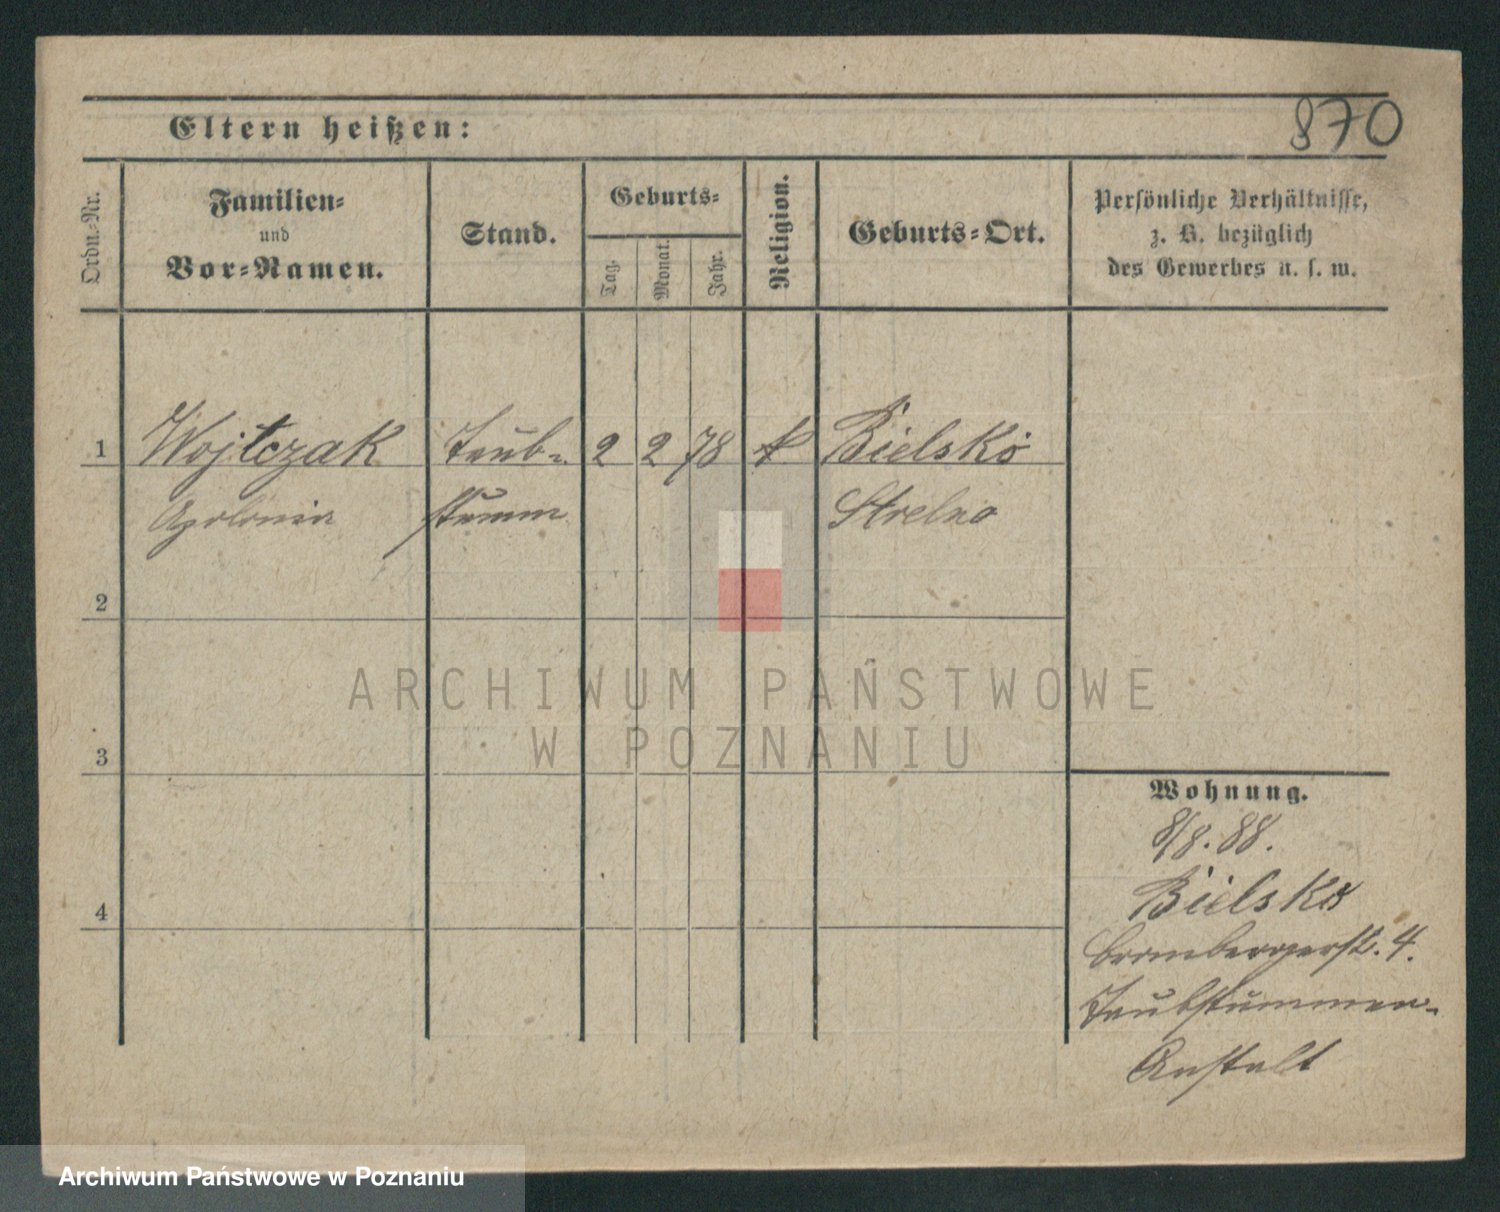 870
Eltern heißen:
Ordn.-Nr.
Familien-
und
Vor-Namen.
Stand.
Geburts-
Tag.
Monat.
Jahr.
Religion.
Geburts-Ort.
Persönliche Verhältnisse,
z. B. bezüglich
des Gewerbes u. s. w.
1 Wojtczak Taub- 2 2 78 k Bielsko
Apolonia stumm Strelno
2
3
4
Wohnung.
8/8. 88.
Bielsko
Brombergerst. 4.
Taubstummen-
Anstalt
ARCHIWUM PAŃSTWOWE
W POZNANIU
Archiwum Państwowe w Poznaniu